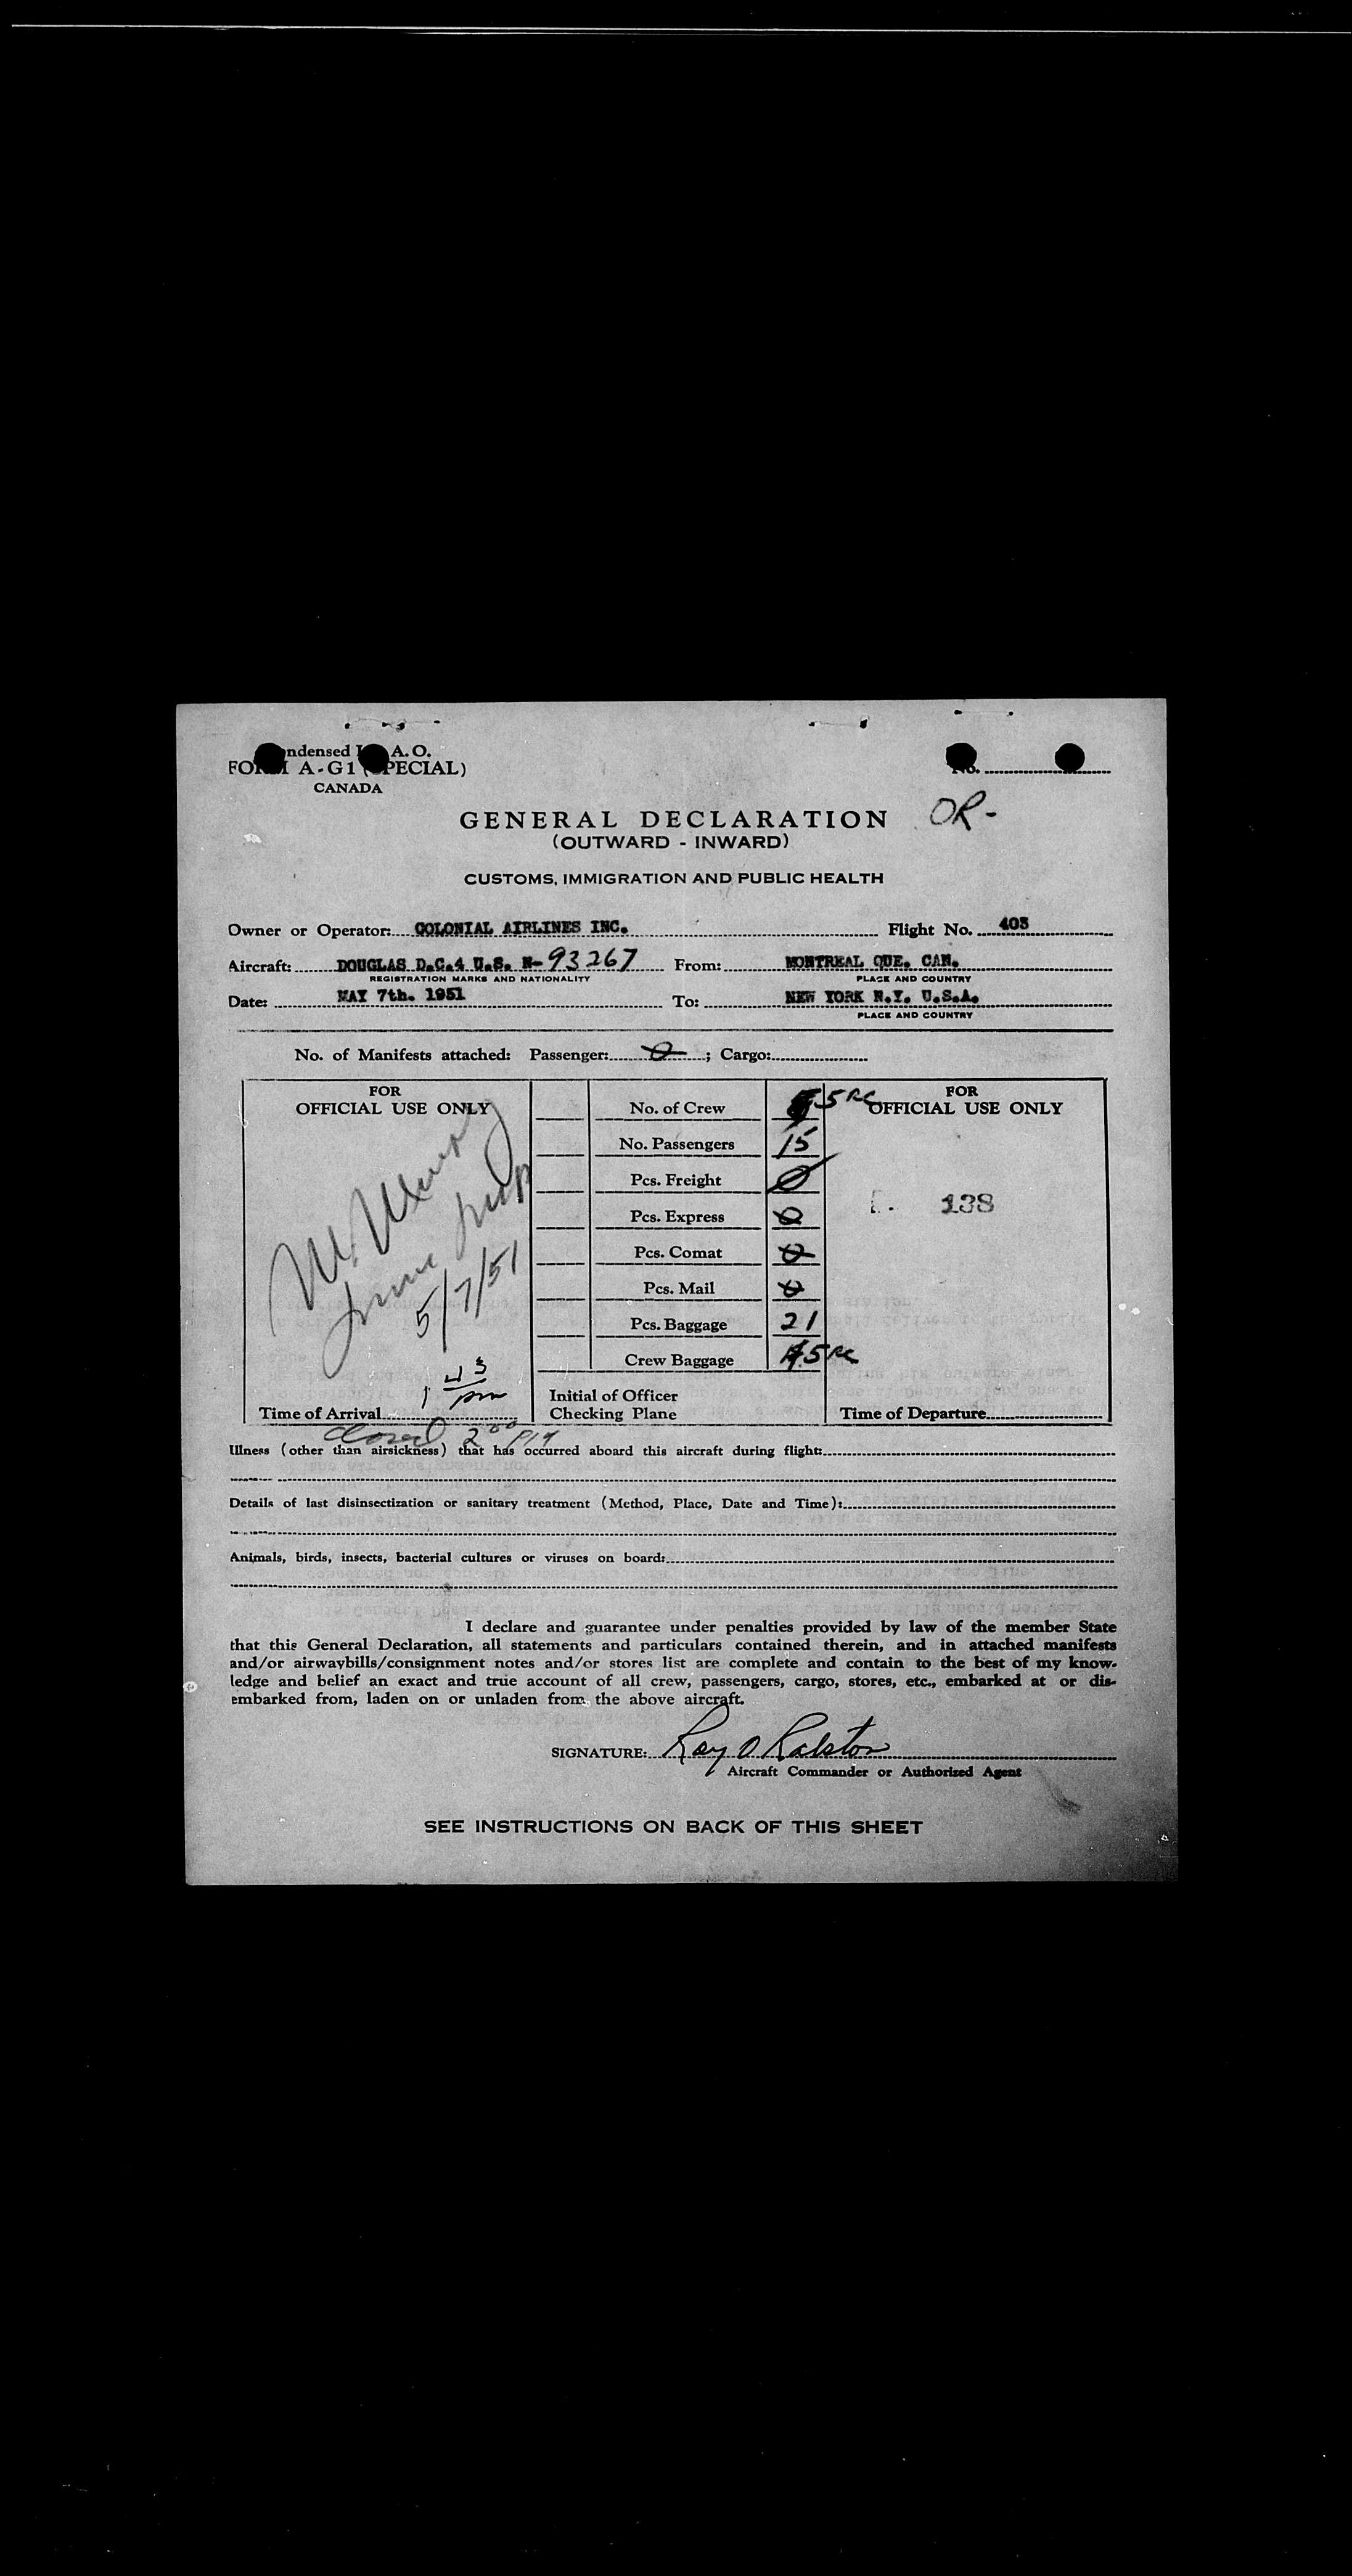 ndensed I A. O.
FORM A-G1 (SPECIAL)
CANADA
No.
OR-
GENERAL DECLARATION
(OUTWARD - INWARD)
CUSTOMS, IMMIGRATION AND PUBLIC HEALTH
Owner or Operator: COLONIAL AIRLINES INC. Flight No. 403
Aircraft: DOUGLAS D.C.4 U.S. N- 93267 From: MONTREAL QUE. CAN.
REGISTRATION MARKS AND NATIONALITY PLACE AND COUNTRY
Date: MAY 7th. 1951 To: NEW YORK N.Y. U.S.A.
PLACE AND COUNTRY
No. of Manifests attached: Passenger: 0 ; Cargo:
FOR
OFFICIAL USE ONLY
5/7/51
1 43 pm
Time of Arrival
closed 2 00 PM
No. of Crew 5 RC
No. Passengers 15
Pcs. Freight 0
Pcs. Express 0
Pcs. Comat 0
Pcs. Mail 0
Pcs. Baggage 21
Crew Baggage 5 RC
Initial of Officer
Checking Plane
FOR
OFFICIAL USE ONLY
138
Time of Departure
Illness (other than airsickness) that has occurred aboard this aircraft during flight:
Details of last disinsectization or sanitary treatment (Method, Place, Date and Time):
Animals, birds, insects, bacterial cultures or viruses on board:
I declare and guarantee under penalties provided by law of the member State
that this General Declaration, all statements and particulars contained therein, and in attached manifests
and/or airwaybills/consignment notes and/or stores list are complete and contain to the best of my know-
ledge and belief an exact and true account of all crew, passengers, cargo, stores, etc., embarked at or dis-
embarked from, laden on or unladen from the above aircraft.
SIGNATURE: Ray O Ralston
Aircraft Commander or Authorized Agent
SEE INSTRUCTIONS ON BACK OF THIS SHEET